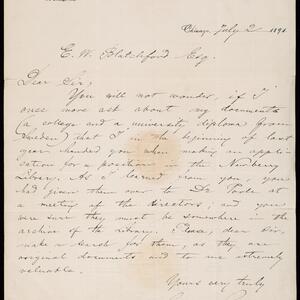 Chicago, July 2 1891
E. W. Blatchford Esq.
Dear Sir;
You will not wonder, if I
once more ask about my documents
(a college and a university diploma from
Sweden) that I in the beginning of last
year handed you when making an appli-
cation for a position in the Newberry
Library. As I learned from you, you
had given them over to Dr Poole at
a meeting of the directors, and you
were sure they must be somewhere in the
archive of the library. Please, dear Sir,
make a search for them, as they are
original documents and to me extremely
valuable.
Yours very truly